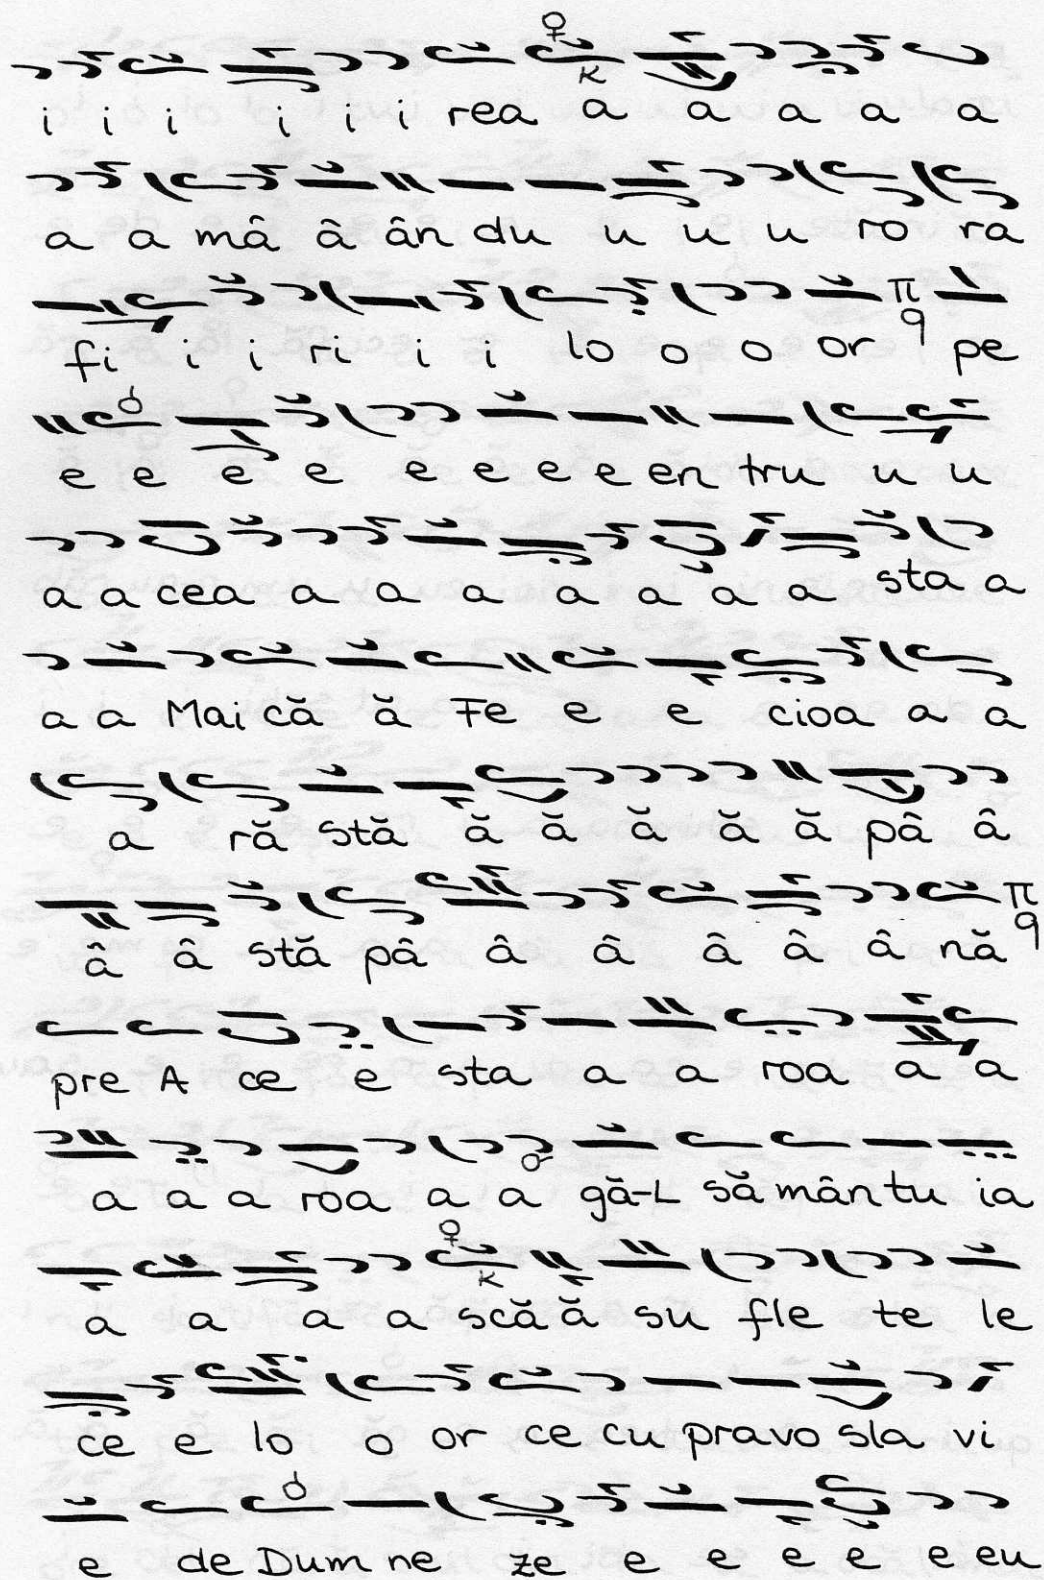 i i i i i i rea a a a a a
a a mâ â ân du u u u ro ra
fi i i ri i i lo o o or pe
e e e e e e e e en tru u u
a a cea a a a a a a a sta a
a a Mai că ă Fe e e cioa a a
a ră stă ă ă ă ă ă pâ â
â â stă pâ â â â â â nă
pre A ce e sta a a roa a a
a a a roa a a gă-L să mân tu ia
a a a a scă ă su fle te le
ce e lo o or ce cu pravo sla vi
e de Dum ne ze e e e e e eu